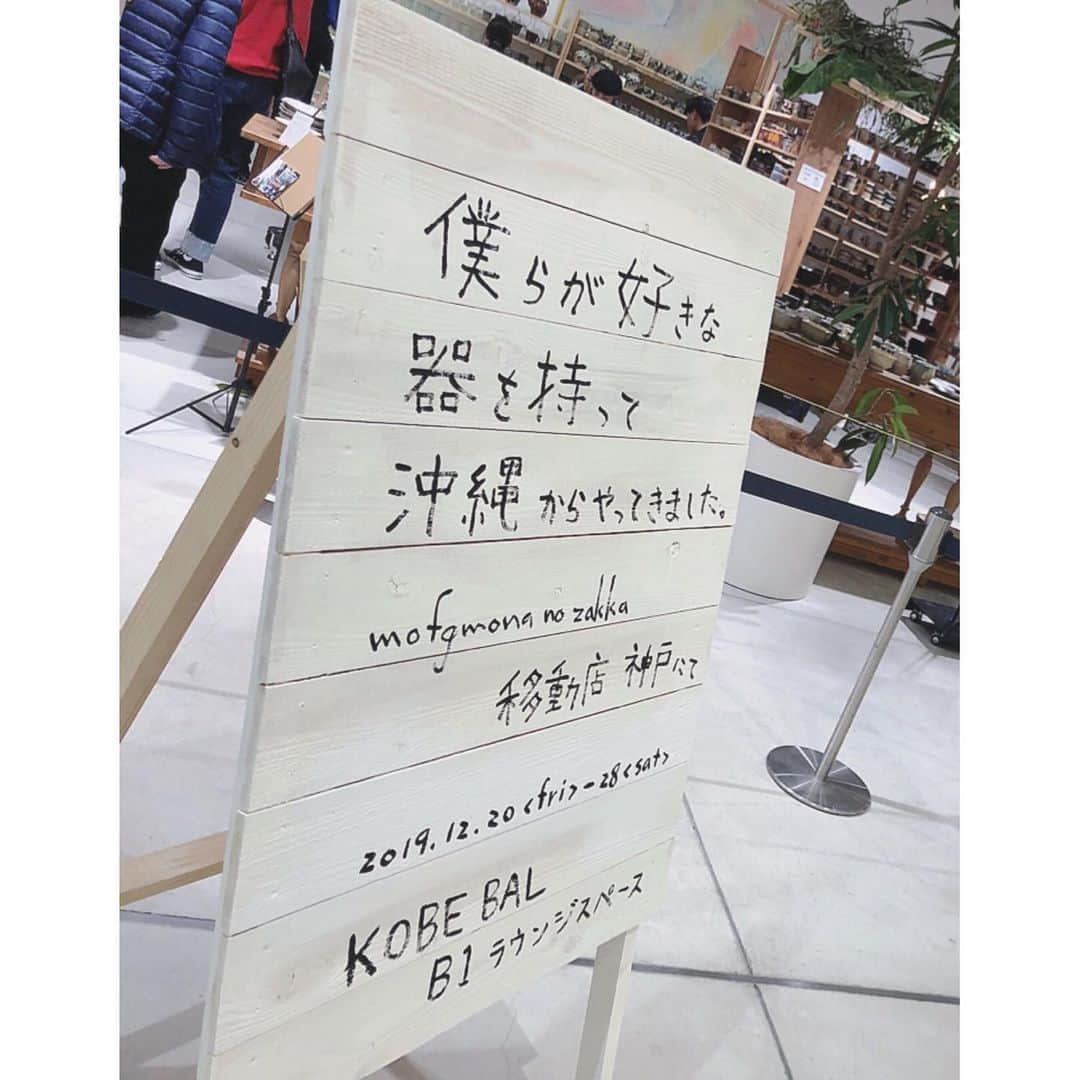 僕らが好きな
器を持って
沖縄からやってきました。
mofgmona no zakka
移動店 神戸にて
2019.12.20<fri>-28<sat>
KOBE BAL
B1 ラウンジスペース